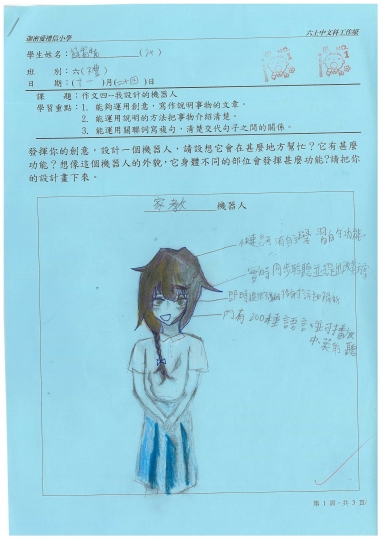 六上中文科工作紙
學生姓名：
班　別：六(禮)
日　期：(十一)月(二十四)日
課　題：作文四--我設計的機器人
學習重點：1. 能夠運用創意，寫作說明事物的文章。
2. 能運用說明的方法把事物介紹清楚。
3. 能運用關聯詞寫複句，清楚交代句子之間的關係。
發揮你的創意，設計一個機器人，請設想它會在甚麼地方幫忙？它有甚麼
功能？想像這個機器人的外貌，它身體不同的部位會發揮甚麼功能?請把你
的設計畫下來。
家教　機器人
學習的功能
實時同步聆聽並
內有200種語言，並可播放
第 1 頁，共 3 頁/